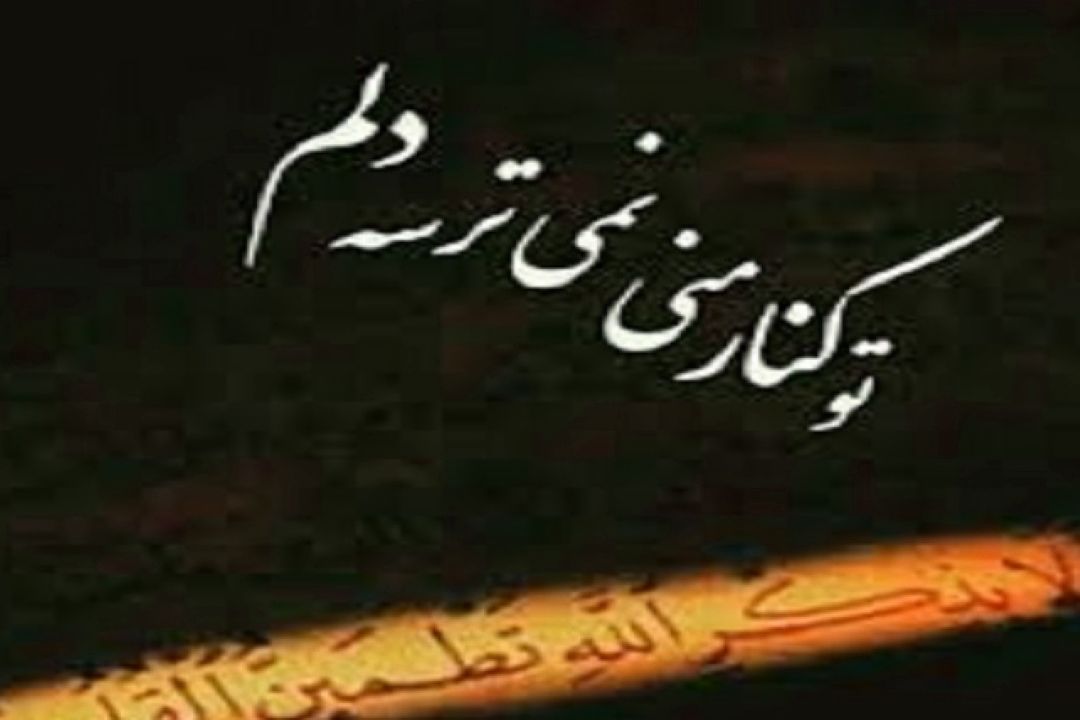 تو کنار منی نمی ترسه دلم
لا بذکر الله تطمئن القل